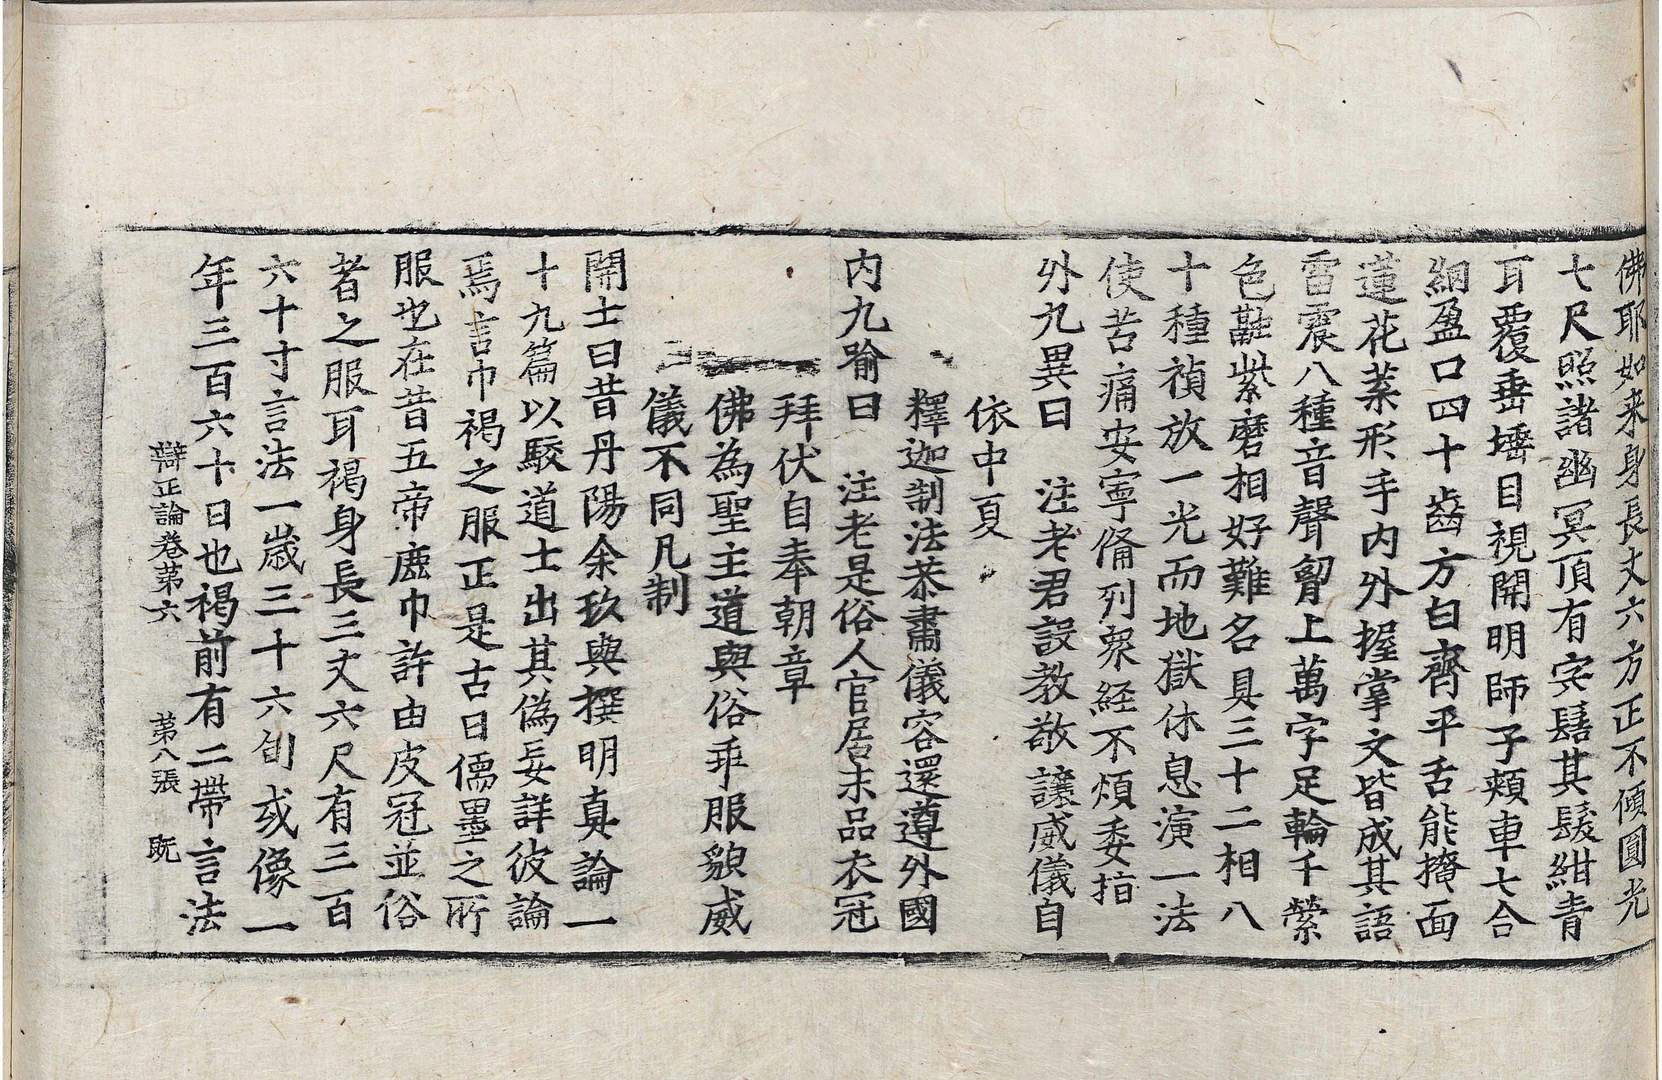 佛耶如来身長丈六方正不傾圓光
七尺照諸幽冥頂有宍髻其髮紺青
耳覆垂埵目視開明師子頰車七合
網盈口四十齒方白齊平舌能掩面
蓮花葉形手内外握掌文皆成其語
雷震八種音聲胷上萬字足輪千縈
色融紫磨相好難名具三十二相八
十種禎放一光而地獄休息演一法
使苦痛安寧俻列衆経不煩委指
外九異曰　注老君設教敬讓威儀自
依中夏
釋迦制法恭肅儀容還遵外國
内九喻曰　注老是俗人官居末品衣冠
拜伏自奉朝章
佛為聖主道與俗乖服貌威
儀不同凡制
開士曰昔丹陽余玖與撰明真論一
十九篇以駮道士出其偽妄詳彼論
焉言巾褐之服正是古日儒墨之所
服也在昔五帝鹿巾許由皮冠並俗
者之服耳褐身長三丈六尺有三百
六十寸言法一歲三十六旬或像一
年三百六十日也褐前有二帶言法
辯正論卷第六　第八張　既